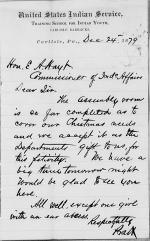 United States Indian Service,
Training School for Indian Youth,
Carlisle Barracks
Carlisle, Pa., Dec 24th 1879
Hon. E. A. Hayt
Commissioner of Ind. Affairs
Dear Sir:
The assembly room
is so far completed as to
cover our Christmas needs
and we accept it as the
Departments gift to us, for
this festivity. We have a
big time tomorrow night
Would be glad to see you
here.
All well, except one girl
with an abscess.
Respectfully
Pratt